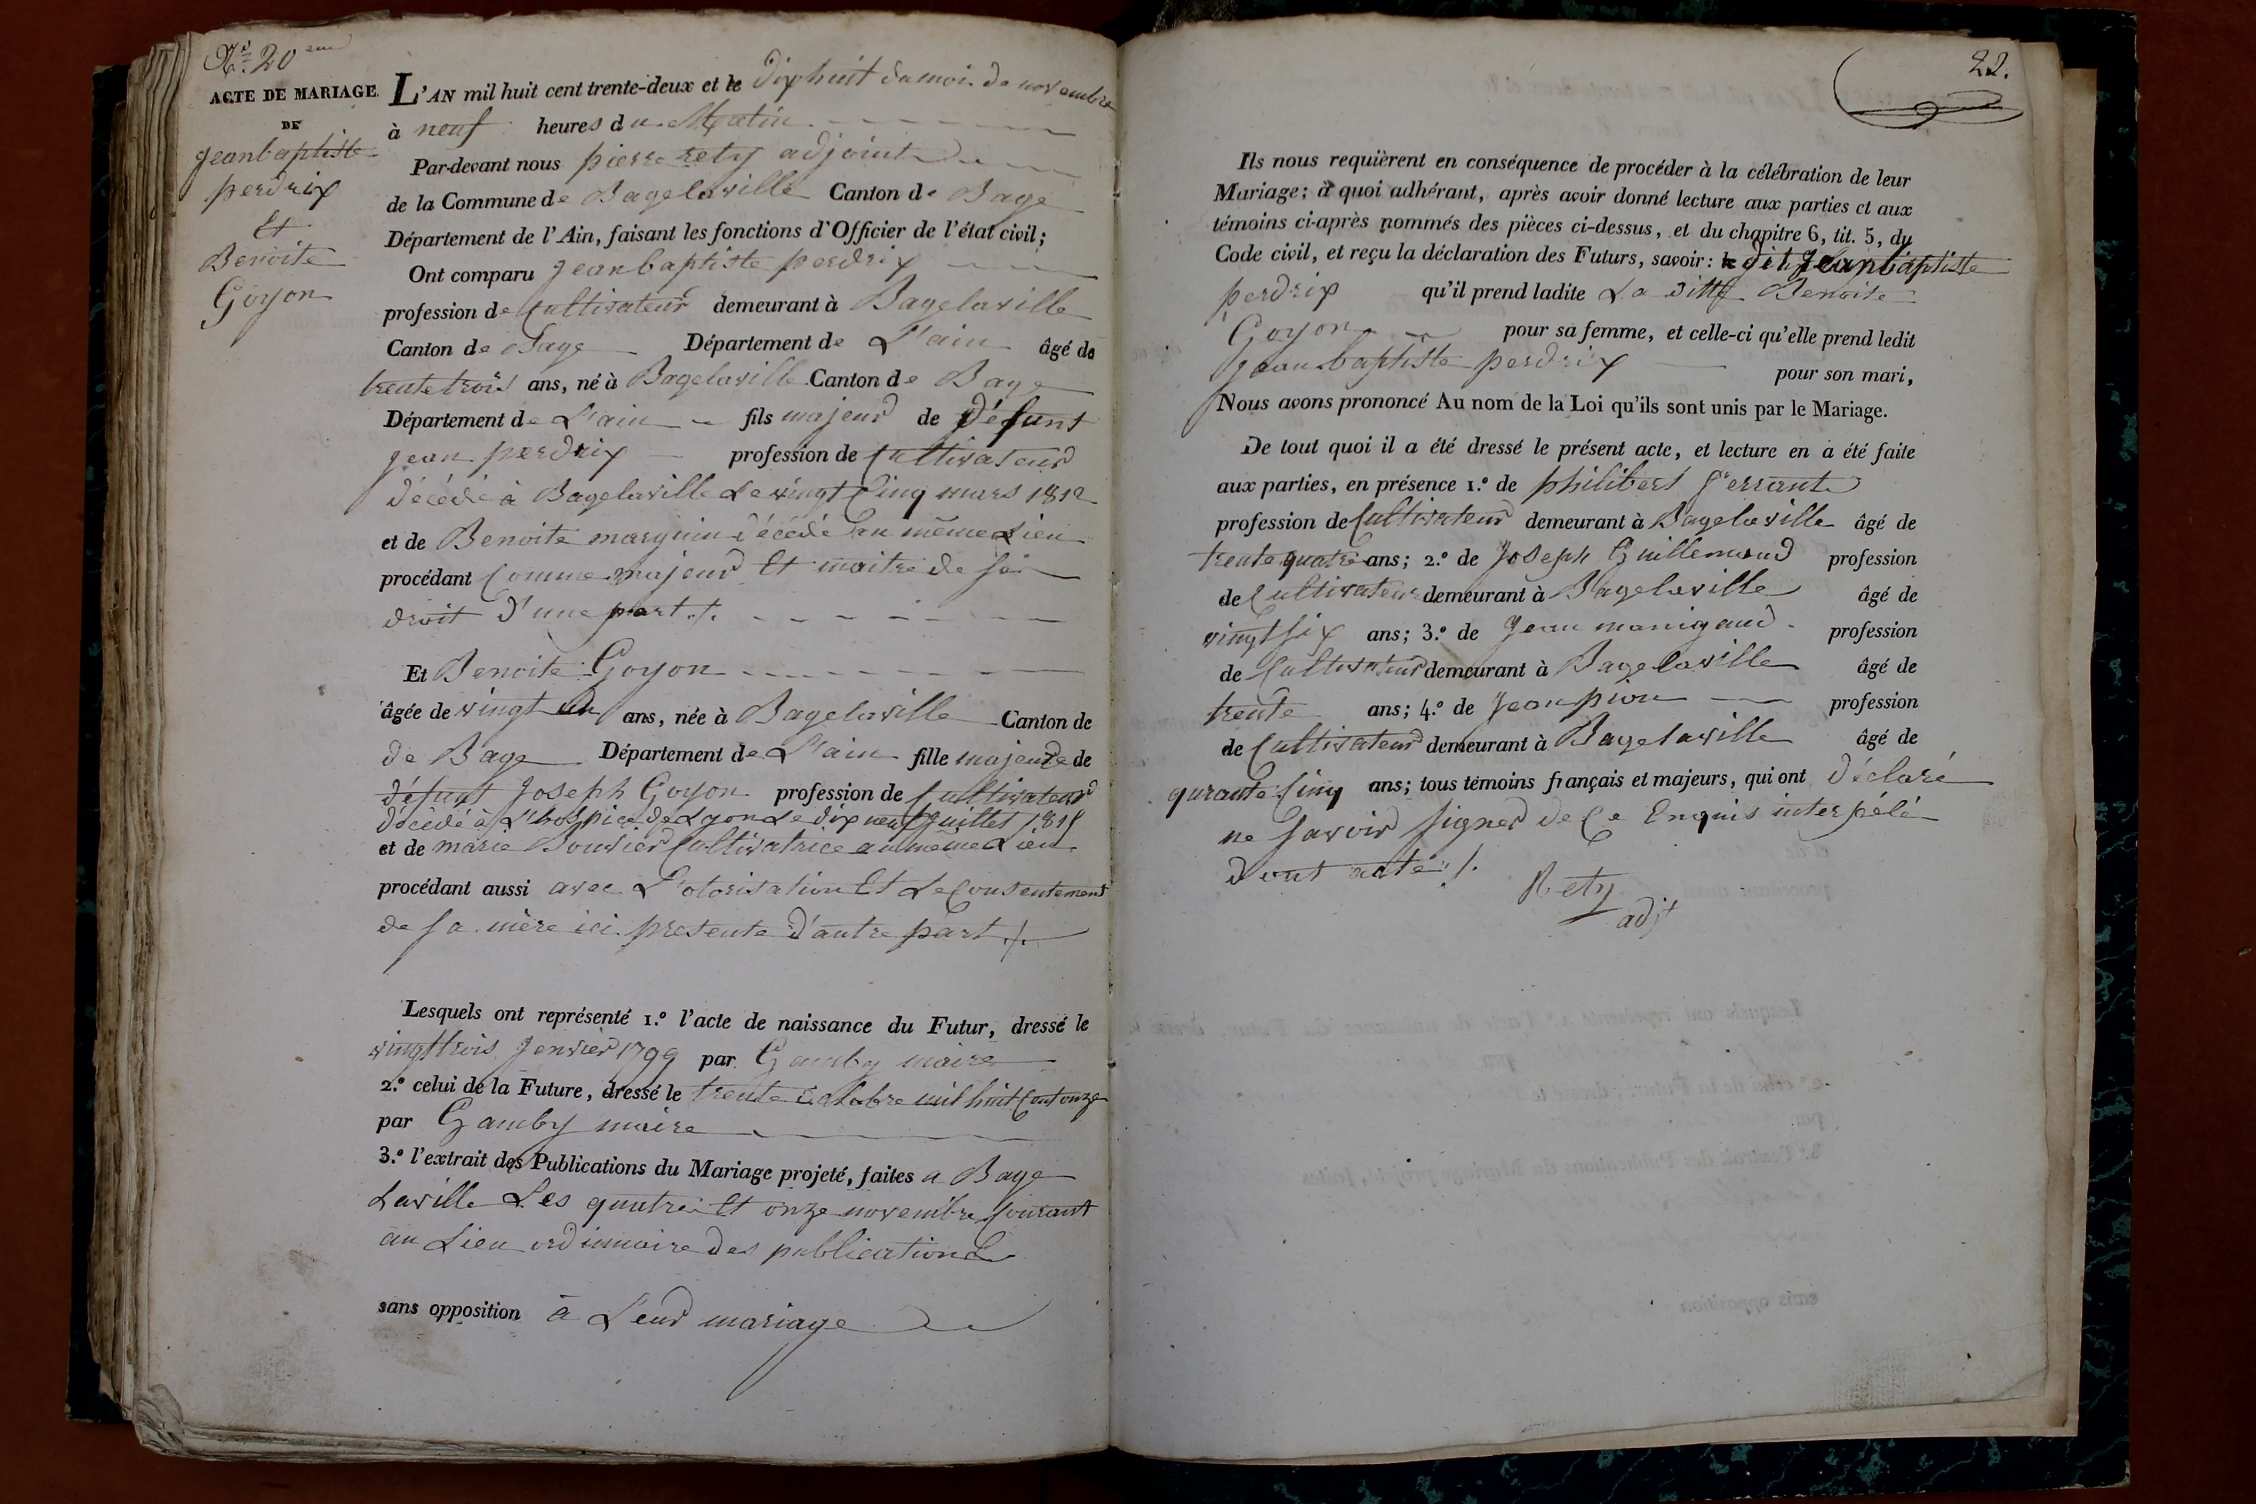 N.° 20 eme
ACTE DE MARIAGE
DE
jeanbaptiste
perdrix
Et
Benoite
Goyon
L'AN mil huit cent trente-deux et le dixhuit du mois de novembre
à neuf heures du Matin
Par-devant nous pierre rety adjoint
de la Commune de Bagelaville Canton de Bage
Département de l'Ain, faisant les fonctions d'Officier de l'état civil;
Ont comparu jeanbaptiste perdrix
profession de Cultivateur demeurant à Bagelaville
Canton de Bage Département de L'ain âgé de
trente trois ans, né à Bagelaville Canton de Bage
Département de L'ain fils majeur de défunt
jean perdrix profession de Cultivateur
décédé à Bagelaville Le vingt Cinq mars 1812
et de Benoite marguin décédé au même Lieu
procédant Comme majeur Et maitre de ses
droit d'une part ./.
Et Benoite Goyon
âgée de vingt un ans, née à Bagelaville Canton de
de Bage Département de L'ain fille majeure de
défunt Joseph Goyon profession de Cultivateur
décédé à L'hospice de Lyon Le dix neuf juillet
et de marie Bouvier Cultivatrice au même Lieu
procédant aussi avec L'otorisation Et Le Consentement
de sa mère ici presente d'autre part ./.
Lesquels ont représenté 1.° l'acte de naissance du Futur, dressé le
vingt trois Jenvier 1799 par Gamby maire
2.° celui de la Future, dressé le trente octobre mil huit Cent onze
par Gamby maire
3.° l'extrait des Publications du Mariage projeté, faites a Bage
Laville Les quatre Et onze novembre Courant
au Lieu ordinnaire des publications
sans opposition à Leur mariage
22.
Ils nous requièrent en conséquence de procéder à la célébration de leur
Mariage; à quoi adhérant, après avoir donné lecture aux parties et aux
témoins ci-après nommés des pièces ci-dessus, et du chapitre 6, tit. 5, du
Code civil, et reçu la déclaration des Futurs, savoir: le dit Jeanbaptiste
perdrix qu'il prend ladite La ditte Benoite
Goyon pour sa femme, et celle-ci qu'elle prend ledit
jean baptiste perdrix pour son mari,
Nous avons prononcé Au nom de la Loi qu'ils sont unis par le Mariage.
De tout quoi il a été dressé le présent acte, et lecture en a été faite
aux parties, en présence 1.° de philibert ferrant
profession de Cultivateur demeurant à Bagelaville âgé de
trente quatre ans; 2.° de Joseph Guillemaud profession
de Cultivateur demeurant à Bagelaville âgé de
vingt six ans; 3.° de Jean manigaud profession
de Cultivateur demeurant à Bagelaville âgé de
trente ans; 4.° de Jean pion profession
de Cultivateur demeurant à Bagelaville âgé de
qurante Cinq ans; tous témoins français et majeurs, qui ont déclaré
ne savoir signer de Ce Enquis interpélé
dont acte ./.
Rety
adjt